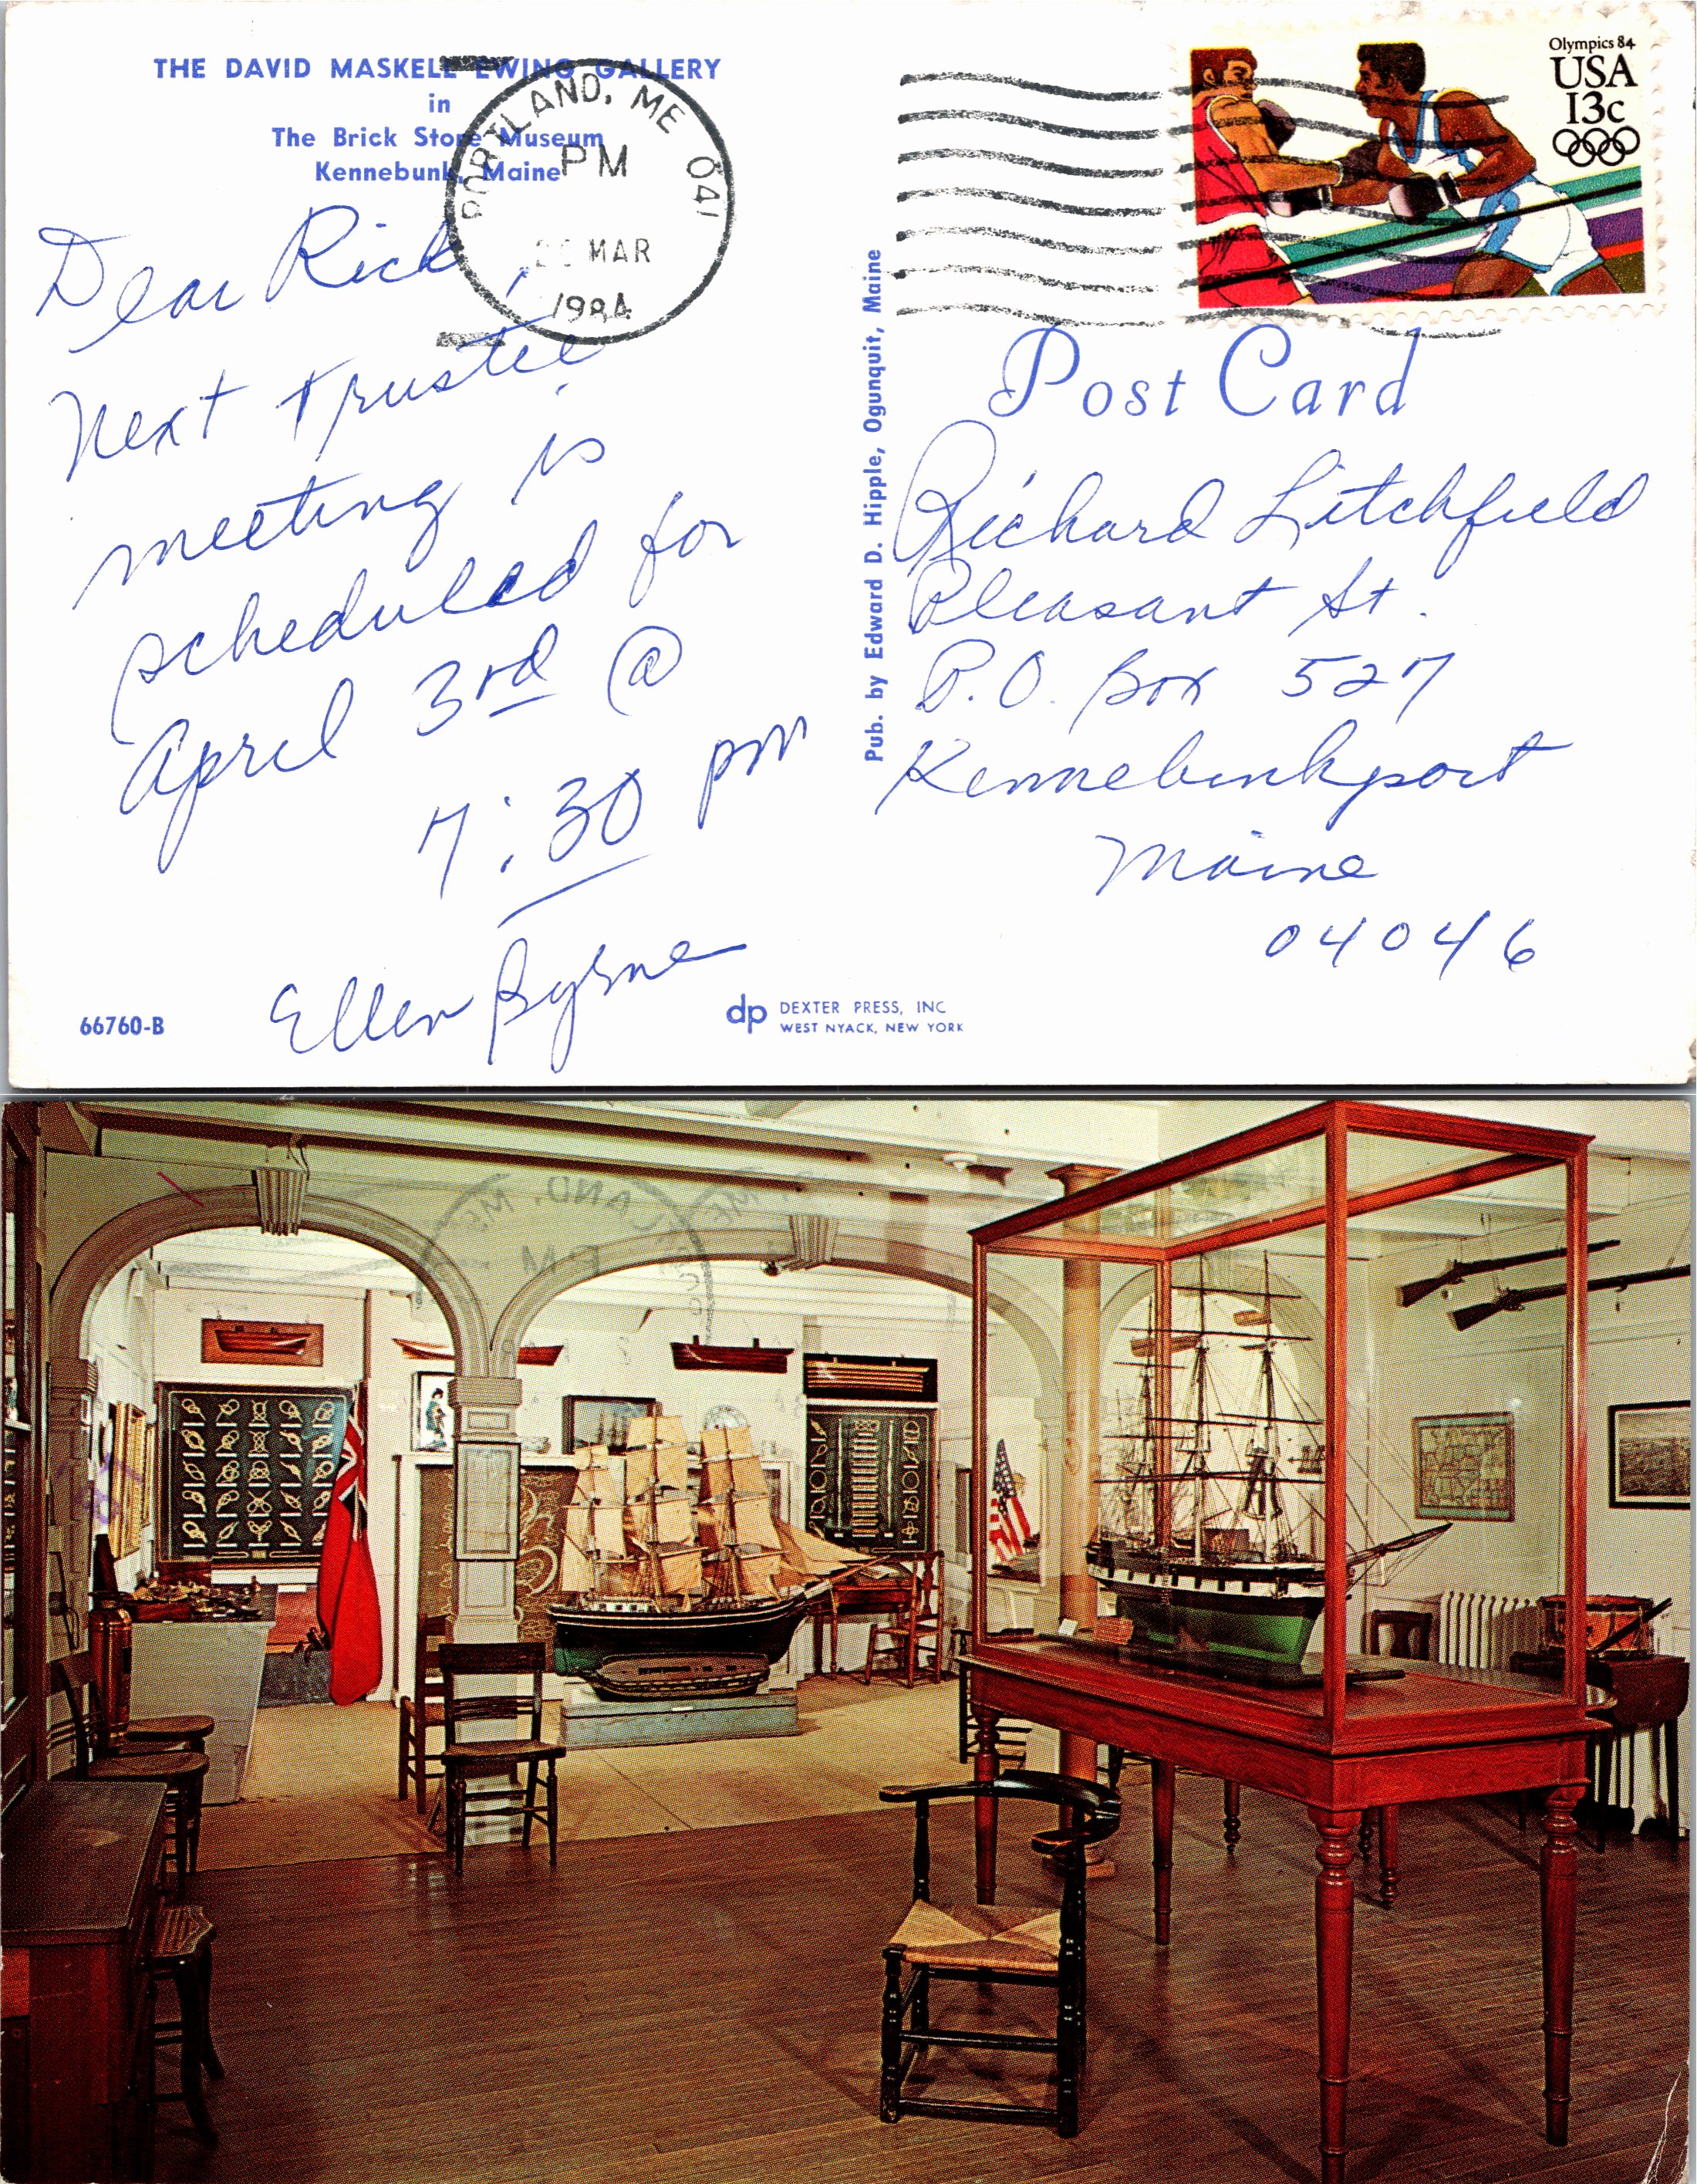 THE DAVID MASKELL EWING GALLERY
in
The Brick Store Museum
Kennebunk, Maine
PORTLAND, ME 041
PM
MAR
1984
Olympics 84
USA
13c
Dear Rick,
Next Trustee
meeting is
scheduled for
April 3rd @
7:30 pm
Ellen Byrne
66760-B
Pub. by Edward D. Hipple, Ogunquit, Maine
Post Card
Richard Litchfield
Pleasant St.
P.O. Box 527
Kennebunkport
Maine
04046
dp DEXTER PRESS, INC
WEST NYACK, NEW YORK